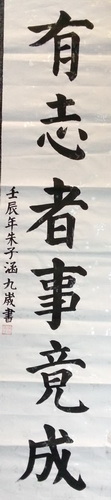 有志者事竟成
壬辰年朱子涵九歲書